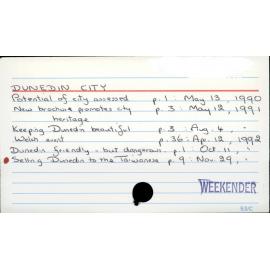 DUNEDIN CITY
Potential of city assessed p. 1 : May 13, 1990
New brochure promotes city p. 3 : May 12, 1991
heritage
Keeping Dunedin beautiful p. 3 : Aug. 4, "
Welsh event p. 36 : Apr. 12, 1992
Dunedin friendly - but dangerous p. 1 : Oct. 11, "
Selling Dunedin to the Taiwanese p. 9 : Nov. 29, "
WEEKENDER